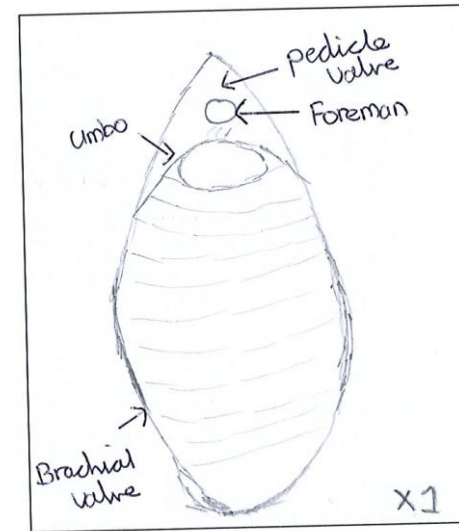 pedicle
valve
Foreman
umbo
Brachial
valve
x1